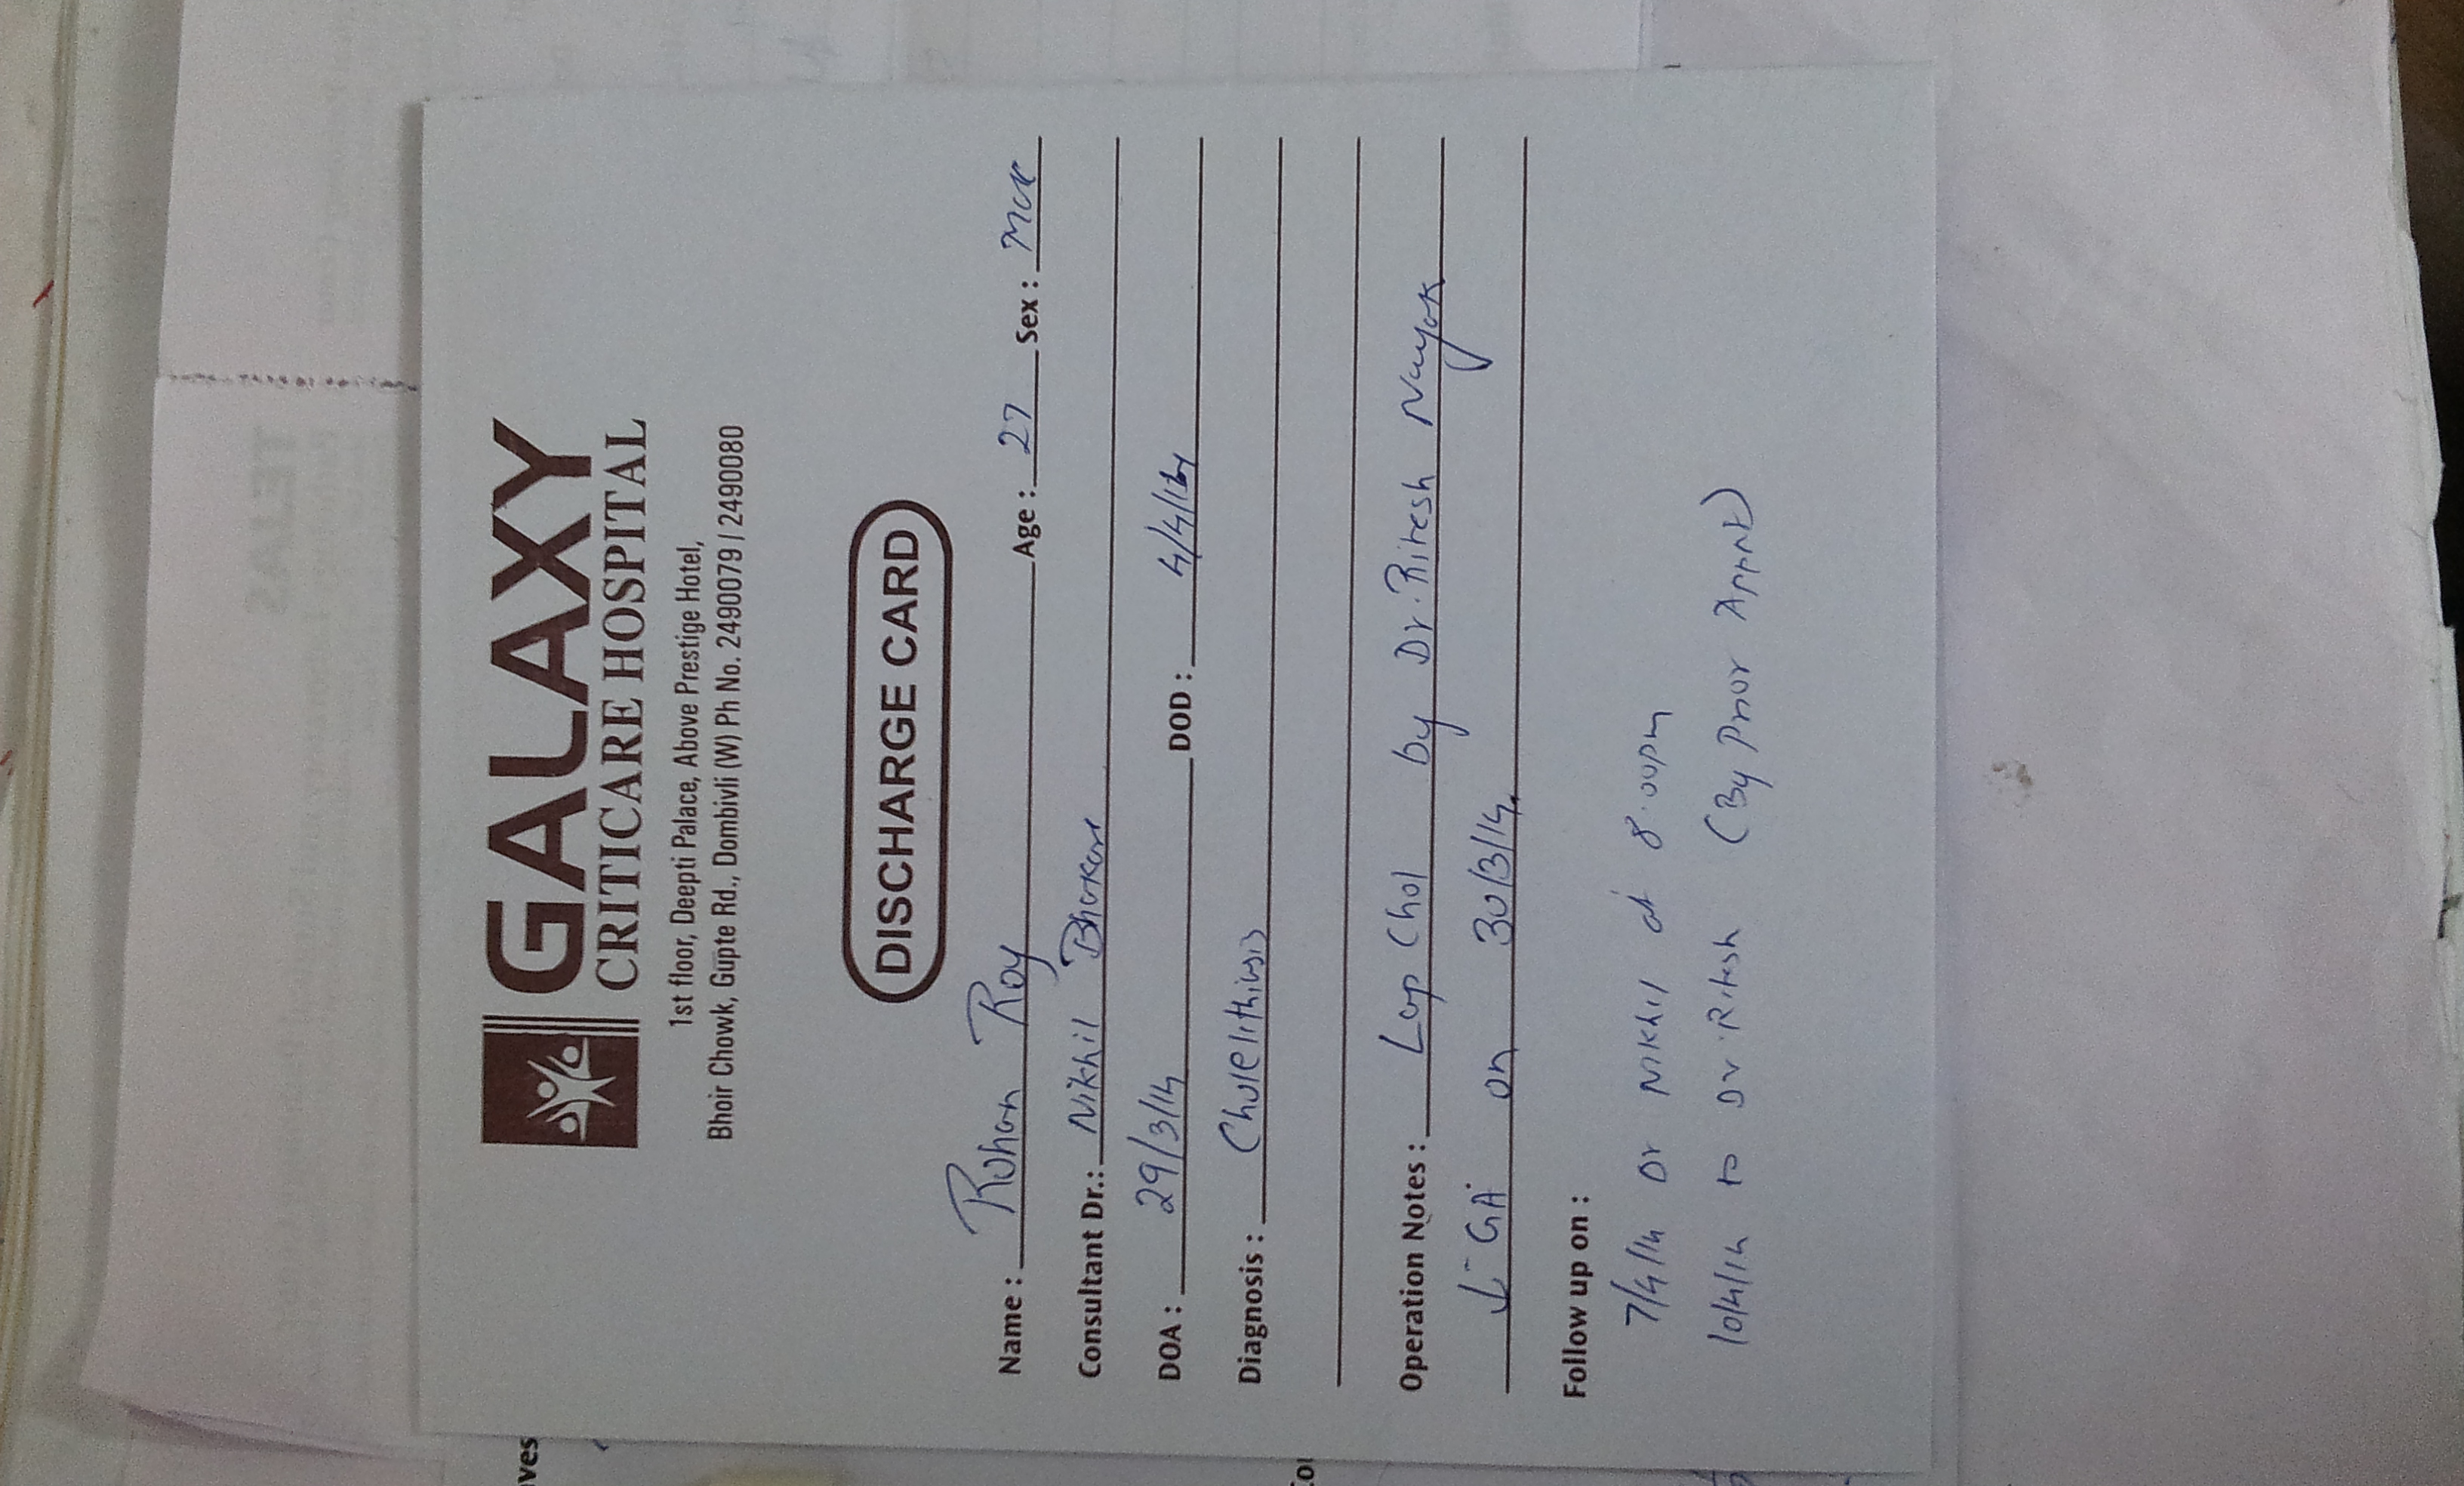 GALAXY
CRITICARE HOSPITAL
1st floor, Deepti Palace, Above Prestige Hotel,
Bhoir Chowk, Gupte Rd., Dombivli (W) Ph No. 2490079 / 2490080
DISCHARGE CARD
Name : Rohan Roy Age : 27 Sex :
Consultant Dr.: Nikhil
DOA : 29/3/14 DOD : 4/4/14
Diagnosis : Cholelithiasis
Operation Notes : Lap Chol by Dr. Ritesh Nayak
GA on 30/3/14.
Follow up on :
7/4/14 Dr Nikhil at 8.00pm
10/4/14 to Dr. Ritesh (By Prior Appnt)